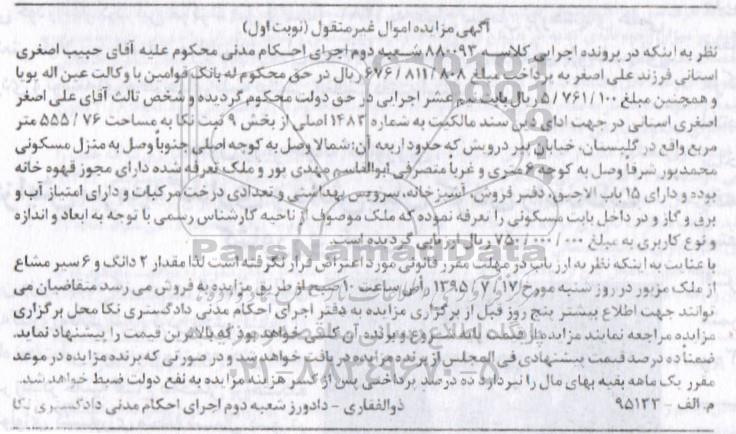 آگهی مزایده اموال غیرمنقول (نوبت اول)
نظر به اینکه در پرونده اجرایی کلاسه 880093 شعبه دوم اجرای احکام مدنی محکوم علیه آقای حبیب اصغری
استانی فرزند علی اصغر به پرداخت مبلغ 676/811/808 ریال در حق محکوم له بانک قوامین با وکالت عین اله پویا
و همچنین مبلغ 5/761/100 ریال بابت نیم عشر اجرایی در حق دولت محکوم گردیده و شخص ثالث آقای علی اصغر
اصغری استانی در جهت ادای دین سند مالکیت به شماره 1483 اصلی از بخش 9 ثبت نکا به مساحت 555/76 متر
مربع واقع در گلبستان، خیابان پیر درویش که حدود اربعه آن: شمالا وصل به کوچه اصلی جنوباً وصل به منزل مسکونی
محمدپور شرقاً وصل به کوچه 6 متری و غرباً متصرفی ابوالقاسم مهدی پور و ملک تعرفه شده دارای مجوز قهوه خانه
بوده و دارای 15 باب آلاچیق، دفتر فروش، آشپزخانه، سرویس بهداشتی و تعدادی درخت مرکبات و دارای امتیاز آب و
برق و گاز و در داخل بافت مسکونی را تعرفه نموده که ملک موصوف از ناحیه کارشناس رسمی با توجه به ابعاد و اندازه
و نوع کاربری به مبلغ 750/000/000 ریال ارزیابی گردیده است.
با عنایت به اینکه نظریه ارزیاب در مهلت مقرر قانونی مورد اعتراض قرار نگرفته است لذا مقدار 2 دانگ و 6 سیر مشاع
از ملک مزبور در روز شنبه مورخ 1395/7/17 رأس ساعت 10 صبح از طریق مزایده به فروش می رسد متقاضیان می
توانند جهت اطلاع بیشتر پنج روز قبل از برگزاری مزایده به دفتر اجرای احکام مدنی دادگستری نکا محل برگزاری
مزایده مراجعه نمایند مزایده از قیمت پایه شروع و برنده آن کسی خواهد بود که بالاترین قیمت را پیشنهاد نماید.
ضمناً ده درصد قیمت پیشنهادی فی المجلس از برنده مزایده دریافت خواهد شد و در صورتی که برنده مزایده در موعد
مقرر یک ماهه بقیه بهای مال را نپردازد ده درصد پرداختی پس از کسر هزینه مزایده به نفع دولت ضبط خواهد شد.
م. الف - 95122 ذوالفقاری - دادورز شعبه دوم اجرای احکام مدنی دادگستری نکا
ParsNamadData
021-88349670-5